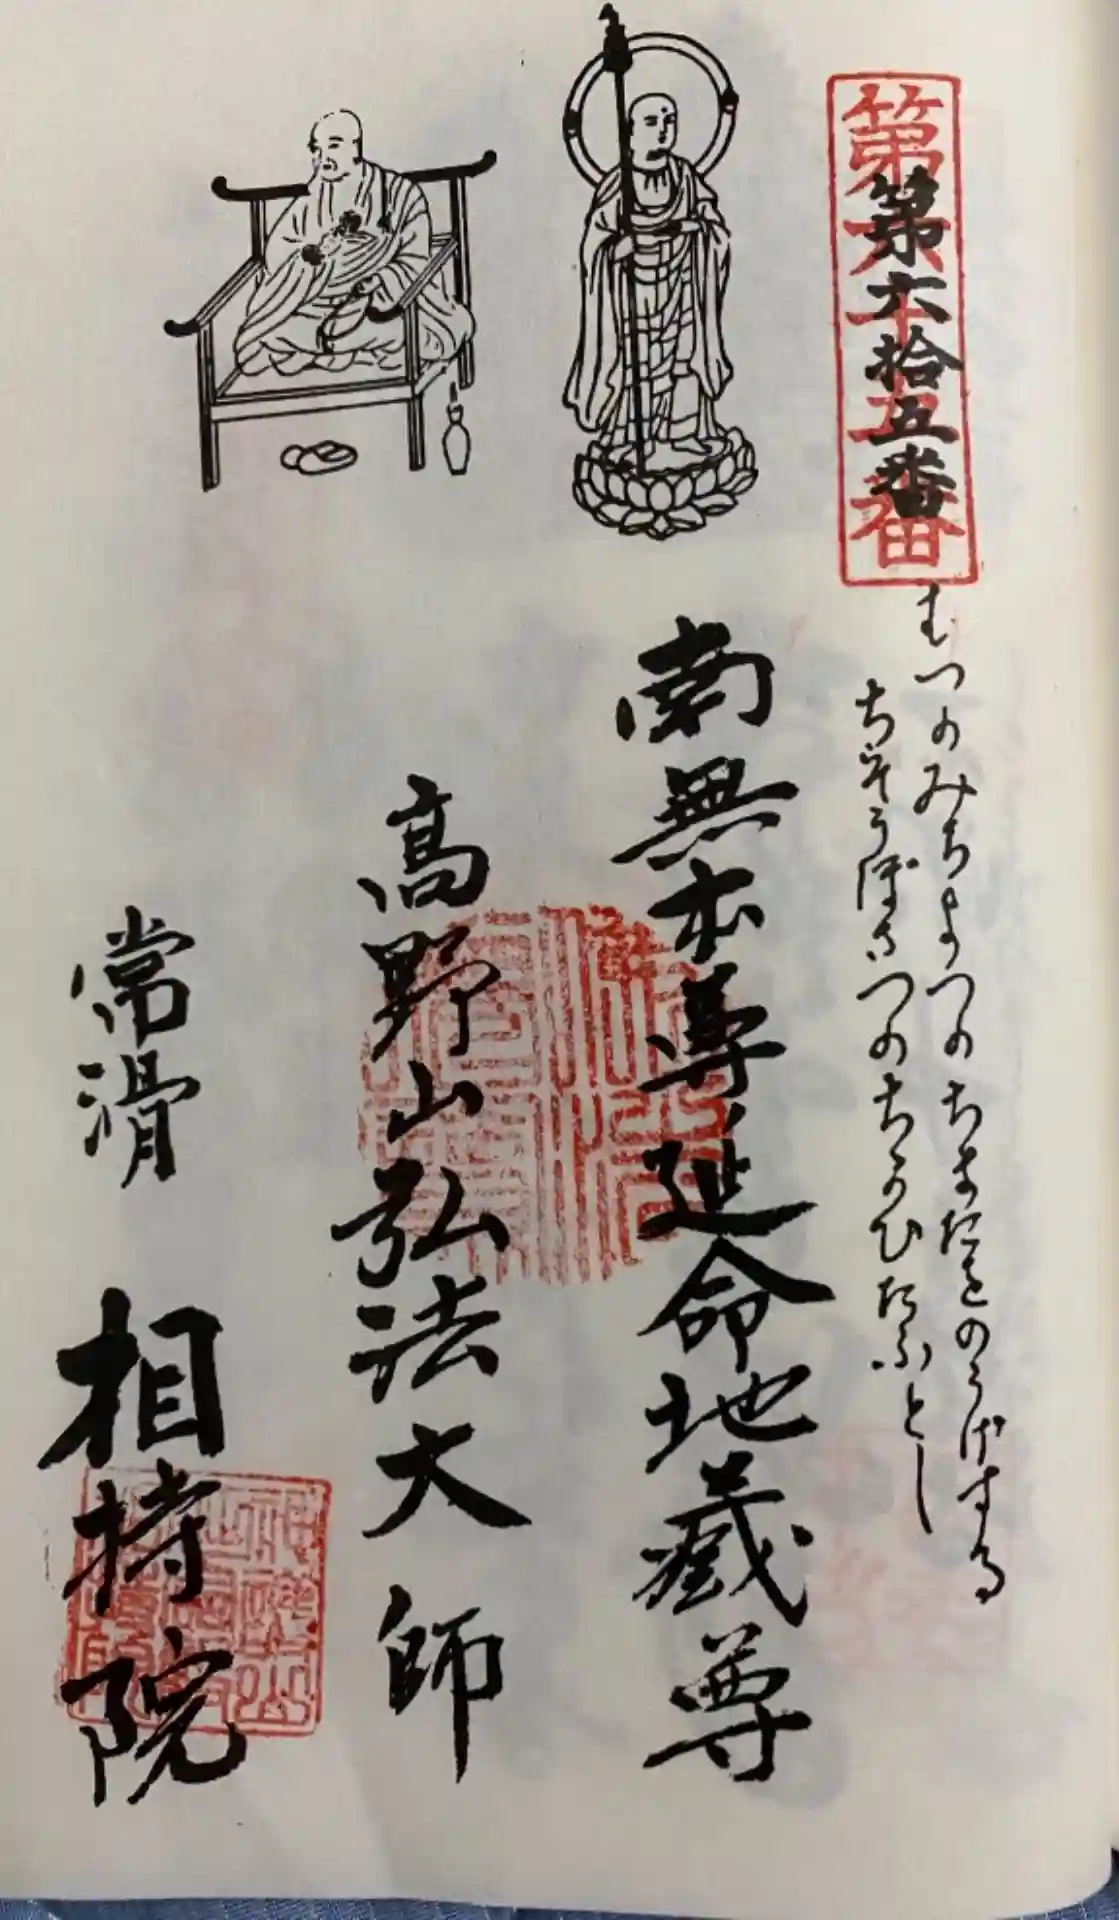 第六十五番
第六拾五番
むつのみちよつのちまたをのうげする
ちぞうぼさつのちかひたふとし
南無本尊延命地藏尊
高野山弘法大師
常滑 相持院